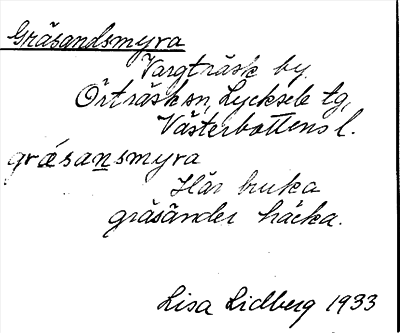 Gräsandsmyra
Vargträsk by
Örträsk sn, Lycksele tg,
Västerbottens l.
grǽsansmyra
Här bruka
gräsänder häcka.
Lisa Lidberg 1933